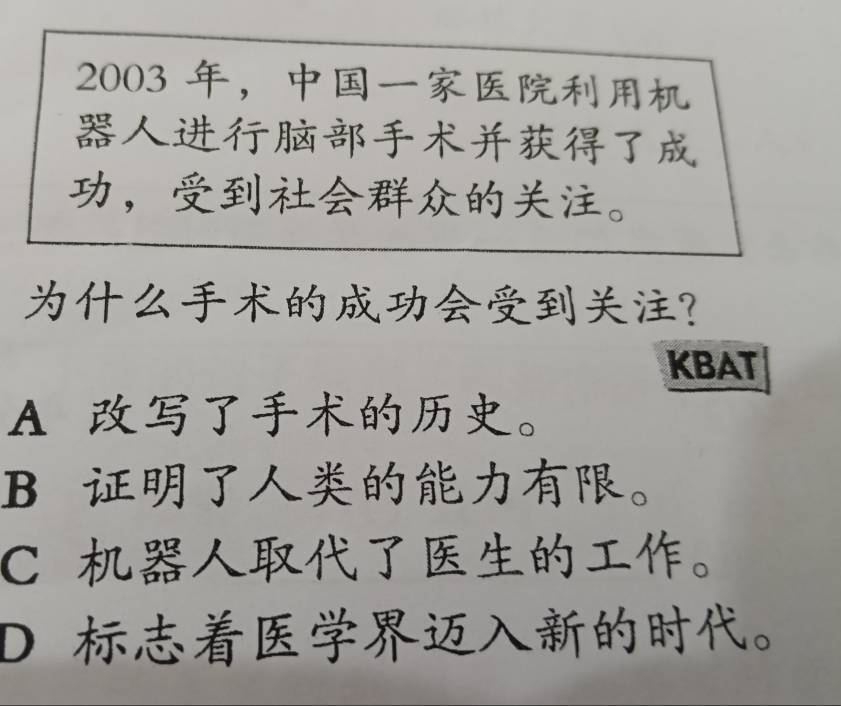 2003 年，中国一家医院利用机
器人进行脑部手术并获得了成
功，受到社会群众的关注。
为什么手术的成功会受到关注?
KBAT
A 改写了手术的历史。
B 证明了人类的能力有限。
C 机器人取代了医生的工作。
D 标志着医学界迈入新的时代。